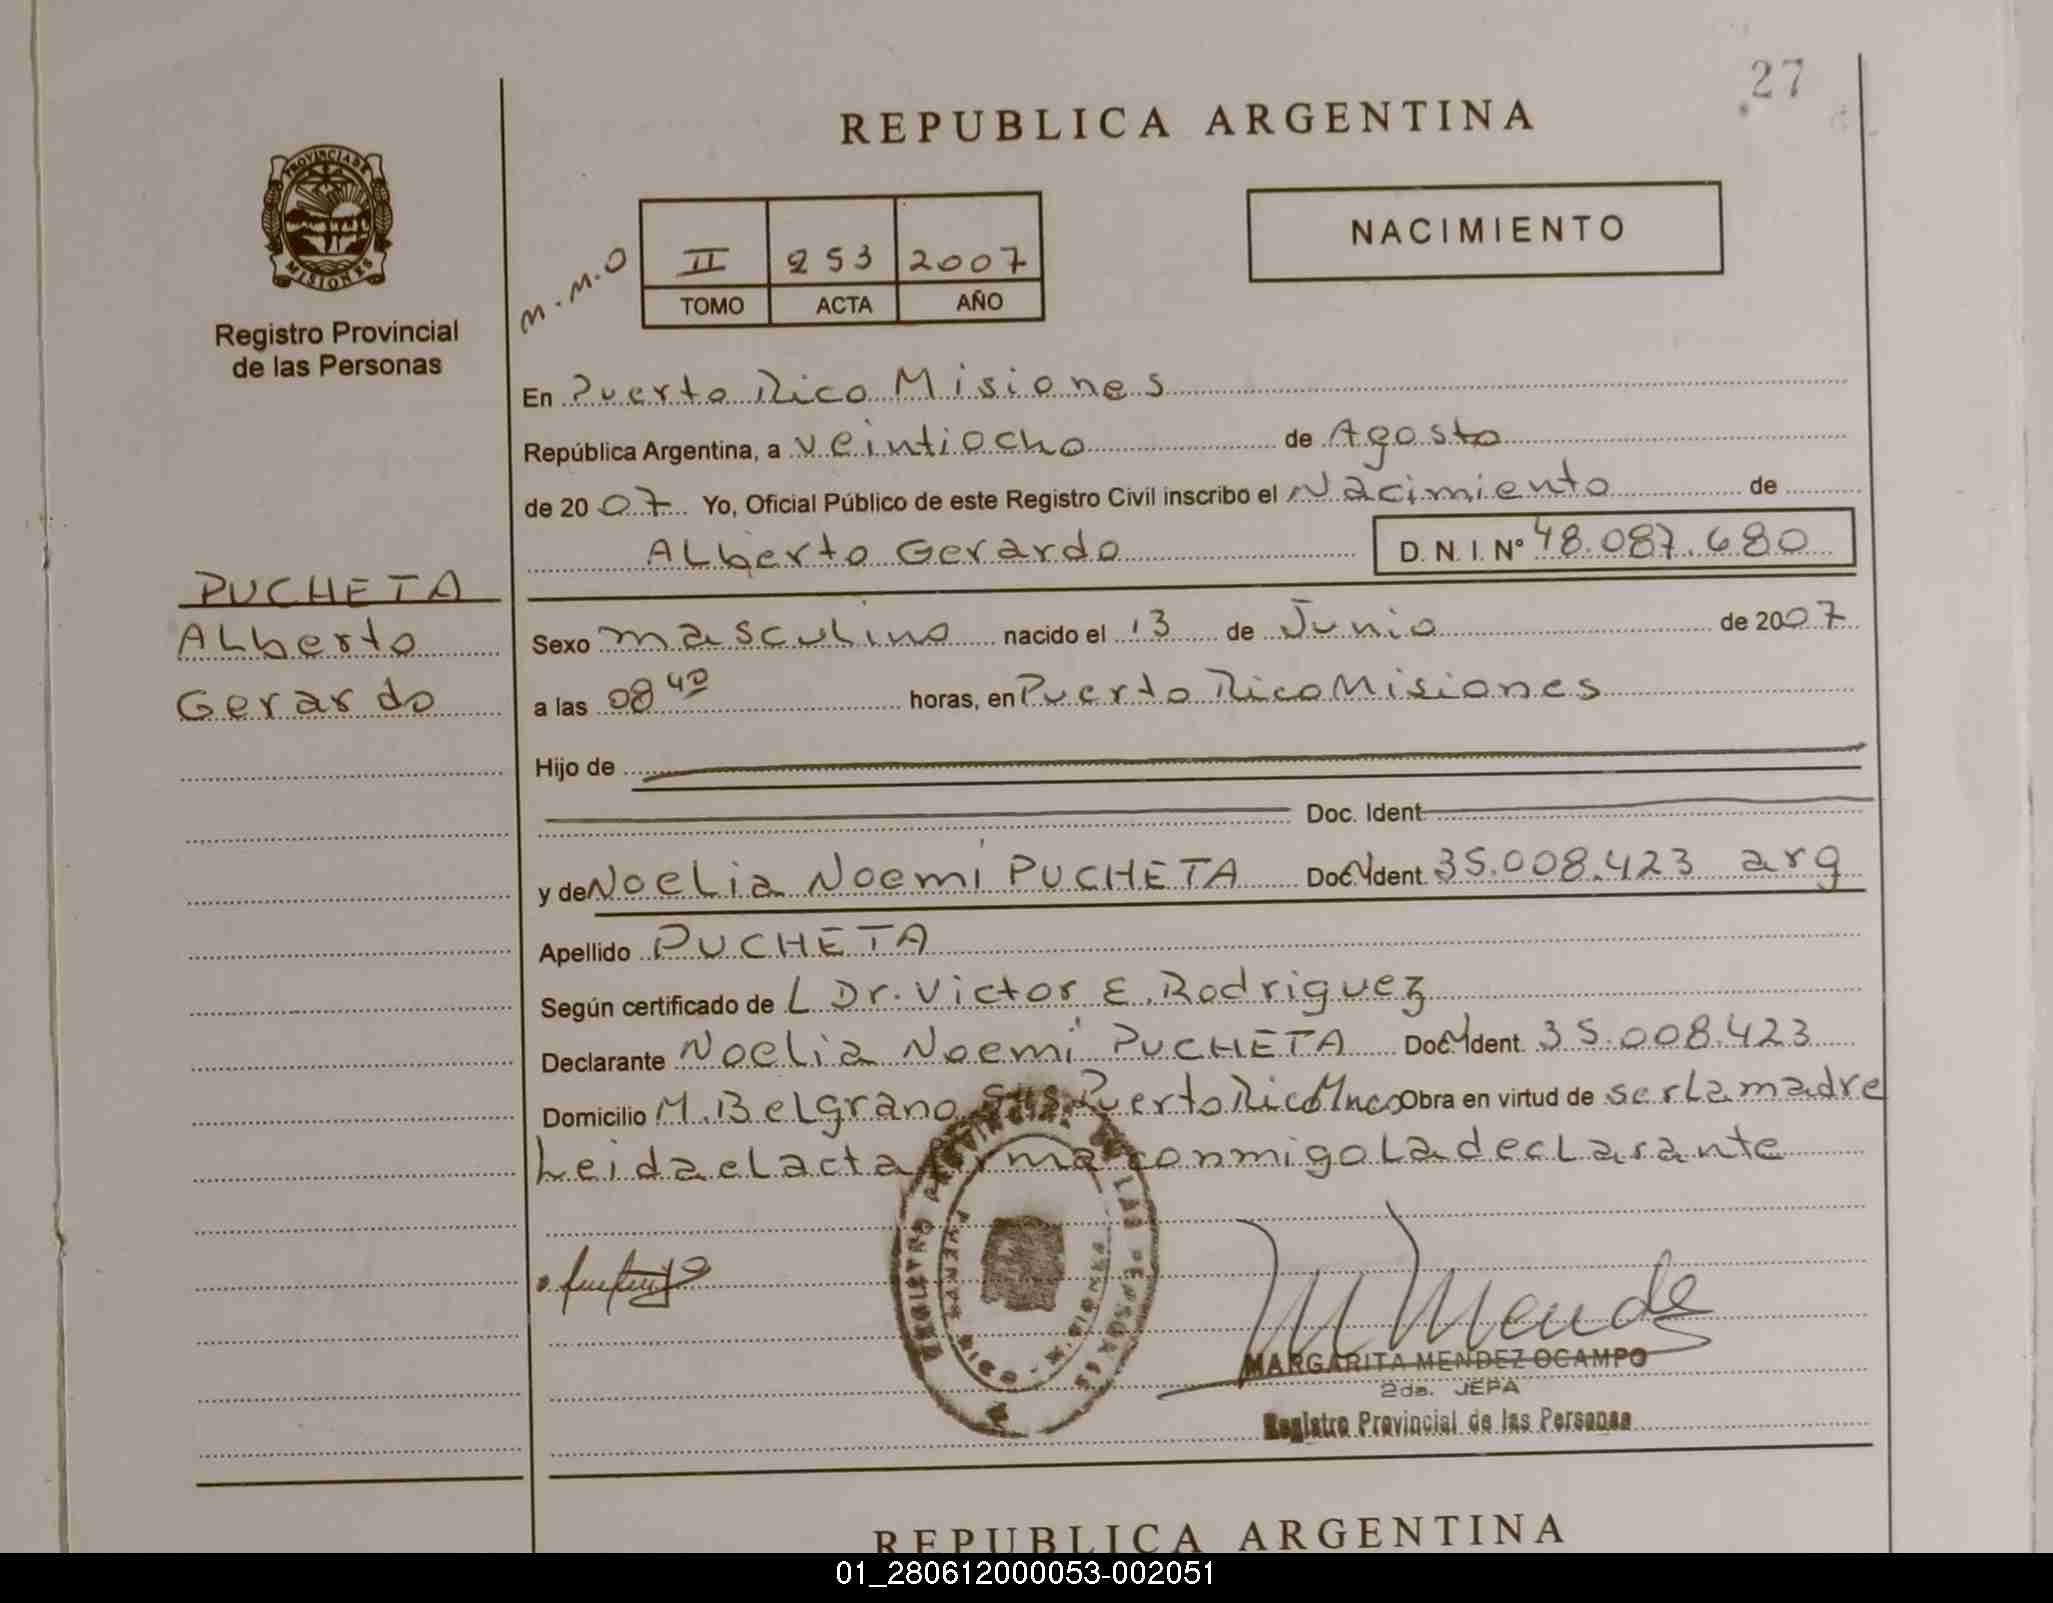 27
REPUBLICA ARGENTINA
PROVINCIA DE MISIONES
Registro Provincial
de las Personas
M.M.O
II 253 2007
TOMO ACTA AÑO
NACIMIENTO
En Puerto Rico Misiones
República Argentina, a veintiocho de Agosto
de 2007 Yo, Oficial Público de este Registro Civil inscribo el Nacimiento de
Alberto Gerardo D. N. I. Nº 48.087.680
PUCHETA
Alberto
Gerardo
Sexo masculino nacido el 13 de Junio de 2007
a las 08 40 horas, en Puerto Rico Misiones
Hijo de
Doc. Ident
y de Noelia Noemí PUCHETA Doc. Ident. 35.008.423 arg
Apellido PUCHETA
Según certificado de L Dr. Victor E. Rodriguez
Declarante Noelia Noemi PUCHETA Doc. Ident. 35.008.423
Domicilio M. Belgrano Puerto Rico Mnes Obra en virtud de ser la madre
Leida el acta firma conmigo la declarante
REGISTRO PROVINCIAL DE LAS PERSONAS
M Mende
MARGARITA MENDEZ OCAMPO
2da. JEFA
Registro Provincial de las Personas
REPUBLICA ARGENTINA
01_280612000053-002051